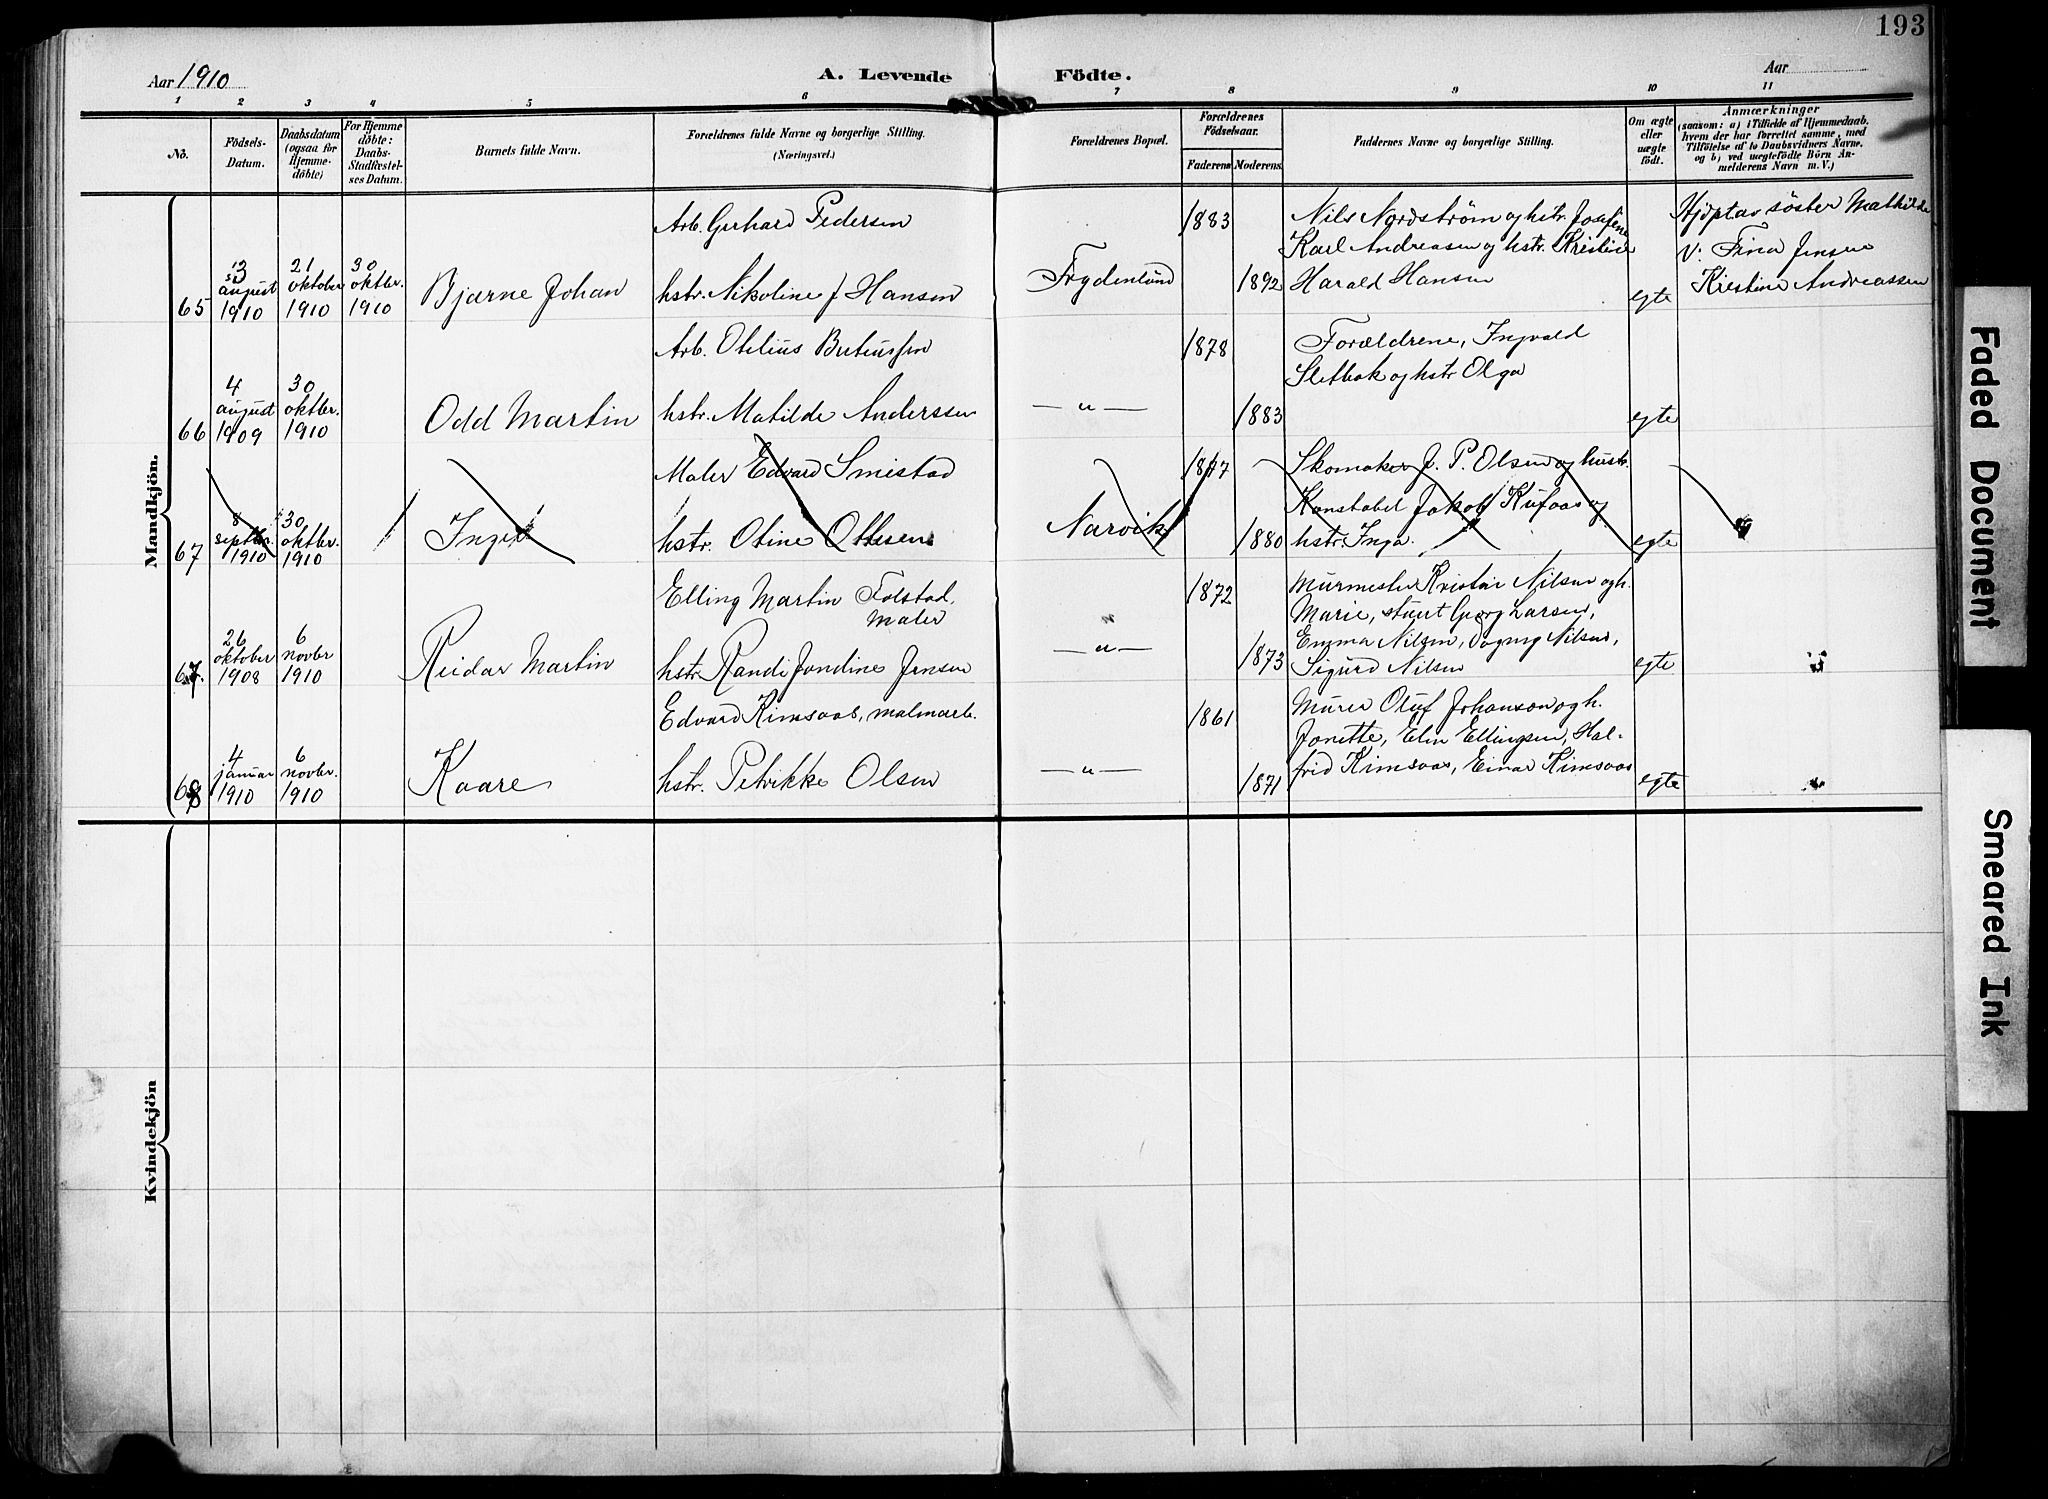 193
Aar 1910
A. Levende Födte.
Aar
1 2 3 4 5 6 7 8 9 10 11
No.
Födsels-
Datum.
Daabsdatum
(ogsaa for
Hjemme-
döbte)
For Hjemme
döbte:
Daabs-
Stadfæstel-
ses Datum.
Barnets fulde Navn.
Forældrenes fulde Navne og borgerlige Stilling.
(Næringsvei.)
Forældrenes Bopæl.
Forældrenes
Födselsaar.
Faderens
Moderens
Faddernes Navne og borgerlige Stilling.
Om ægte
eller
uægte
født.
Anmærkninger
(saasom: a) i Tilfælde af Hjemmedaab.
hvem der har forrettet samme, med
Tilföielse af to Daabsvidners Navne.
og b) ved uægtefödte Börn An-
melderens Navn m. V.)
Mandkjön.
65
august
1910
21
oktober
1910
30
oktbr.
1910
Bjarne Johan
Arb. Gerhard Pedersen
hstr. Nikoline f Hansen
Frydenlund
1883
1892
Nils Nordstrøm og hstr. Josefine
Karl Andreasen og hstr. Kristine
Harald Hansen
egte
søster Mathilde
v: Trina Jensen
Kristine Andreassen
66
4
august
1909
30
oktbr.
1910
Odd Martin
Arb. Otelius
hstr. Matilde Anderssen
— " —
1878
1883
Forældrene, Ingvald
Sletbak og hstr Olga
egte
67
8
septbr.
1910
30
oktbr.
1910
Maler Edvard Smistad
hstr. Otine Ottesen
Narvik
1880
Skomaker J. P. Olsen og hustr.
Konstabel Jakob Kufaas og
hstr. Inga.
egte
67.
26
oktober
1908
6
novbr
1910
Reidar Martin
Elling Martin Folstad,
maler
hstr. Randi Jondine Jensen
— " —
1872
1873
Murmester Kristian Nilsen og h.
Marie, stuert Georg Larsen,
Emma Nilsen, Dagny Nilsen,
Sigurd Nilsen
egte
68
4
januar
1910
6
novbr.
1910
Kaare
Edvard Kimsaas, malmarb.
hstr. Petrikke Olsen
— " —
1861
1871
Murer Oluf Johanson og h.
Jonette, Elen Ellingsen, Hal-
frid Kimsaas, Einar Kimsaas
egte
Kvindekjön
Faded Document
Smeared Ink